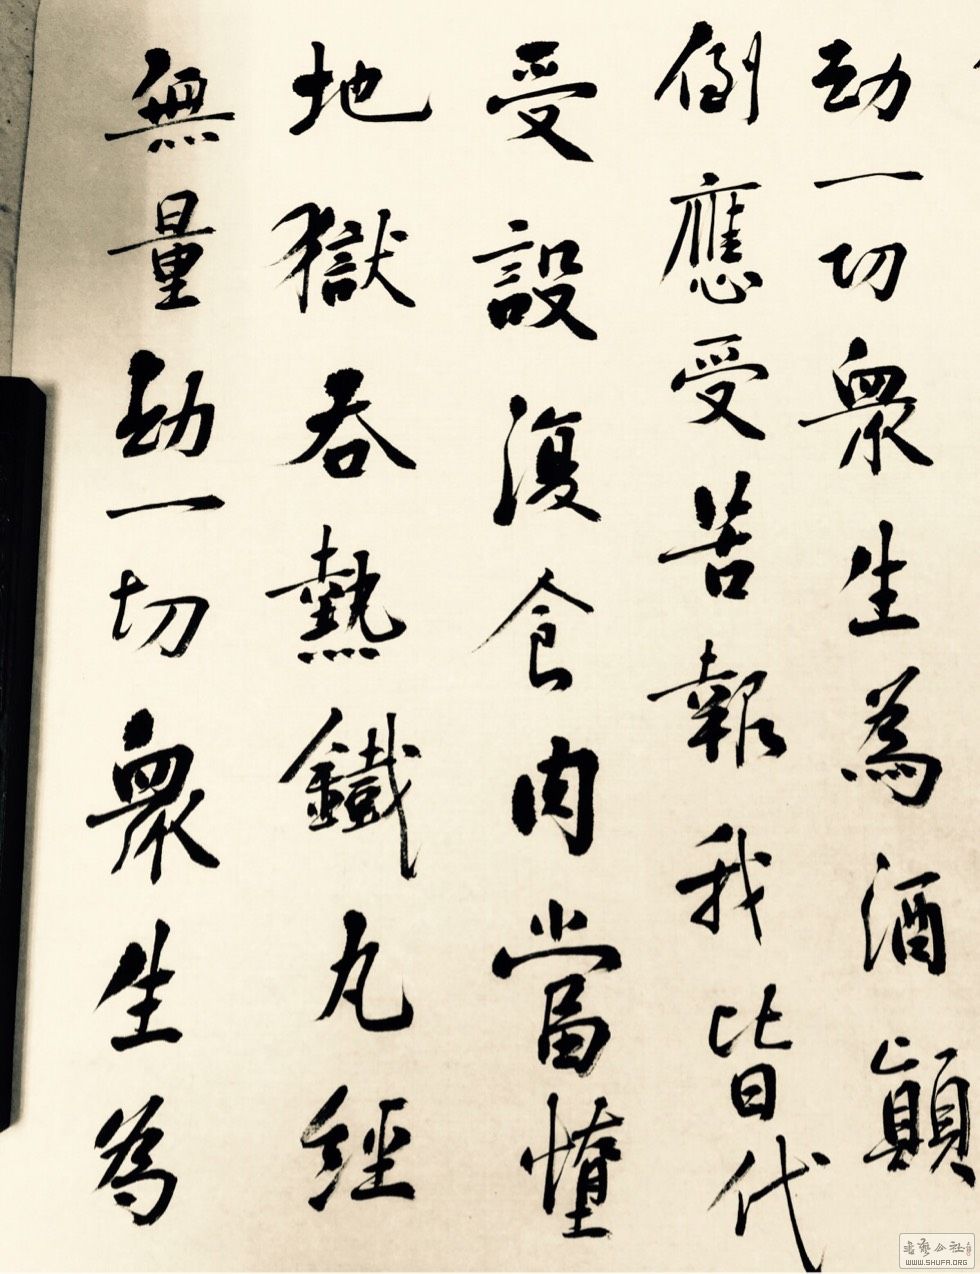 劫一切衆生為酒顛
倒應受苦報我皆代
受設復食肉當墮
地獄吞熱鐵丸經
無量劫一切衆生為
書藝公社
WWW.SHUFA.ORG